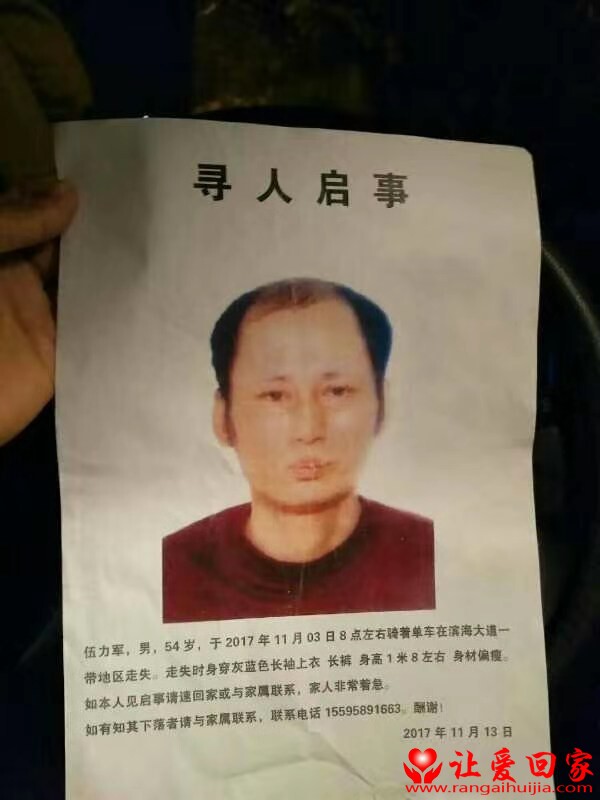 寻人启事
伍力军，男，54岁，于2017年11月03日8点左右骑着单车在滨海大道一
带地区走失。走失时身穿灰蓝色长袖上衣 长裤 身高1米8左右 身材偏瘦。
如本人见启事请速回家或与家属联系，家人非常着急。
如有知其下落者请与家属联系，联系电话15595891663。酬谢！
2017年11月13日
让爱回家
www.rangaihuijia.com